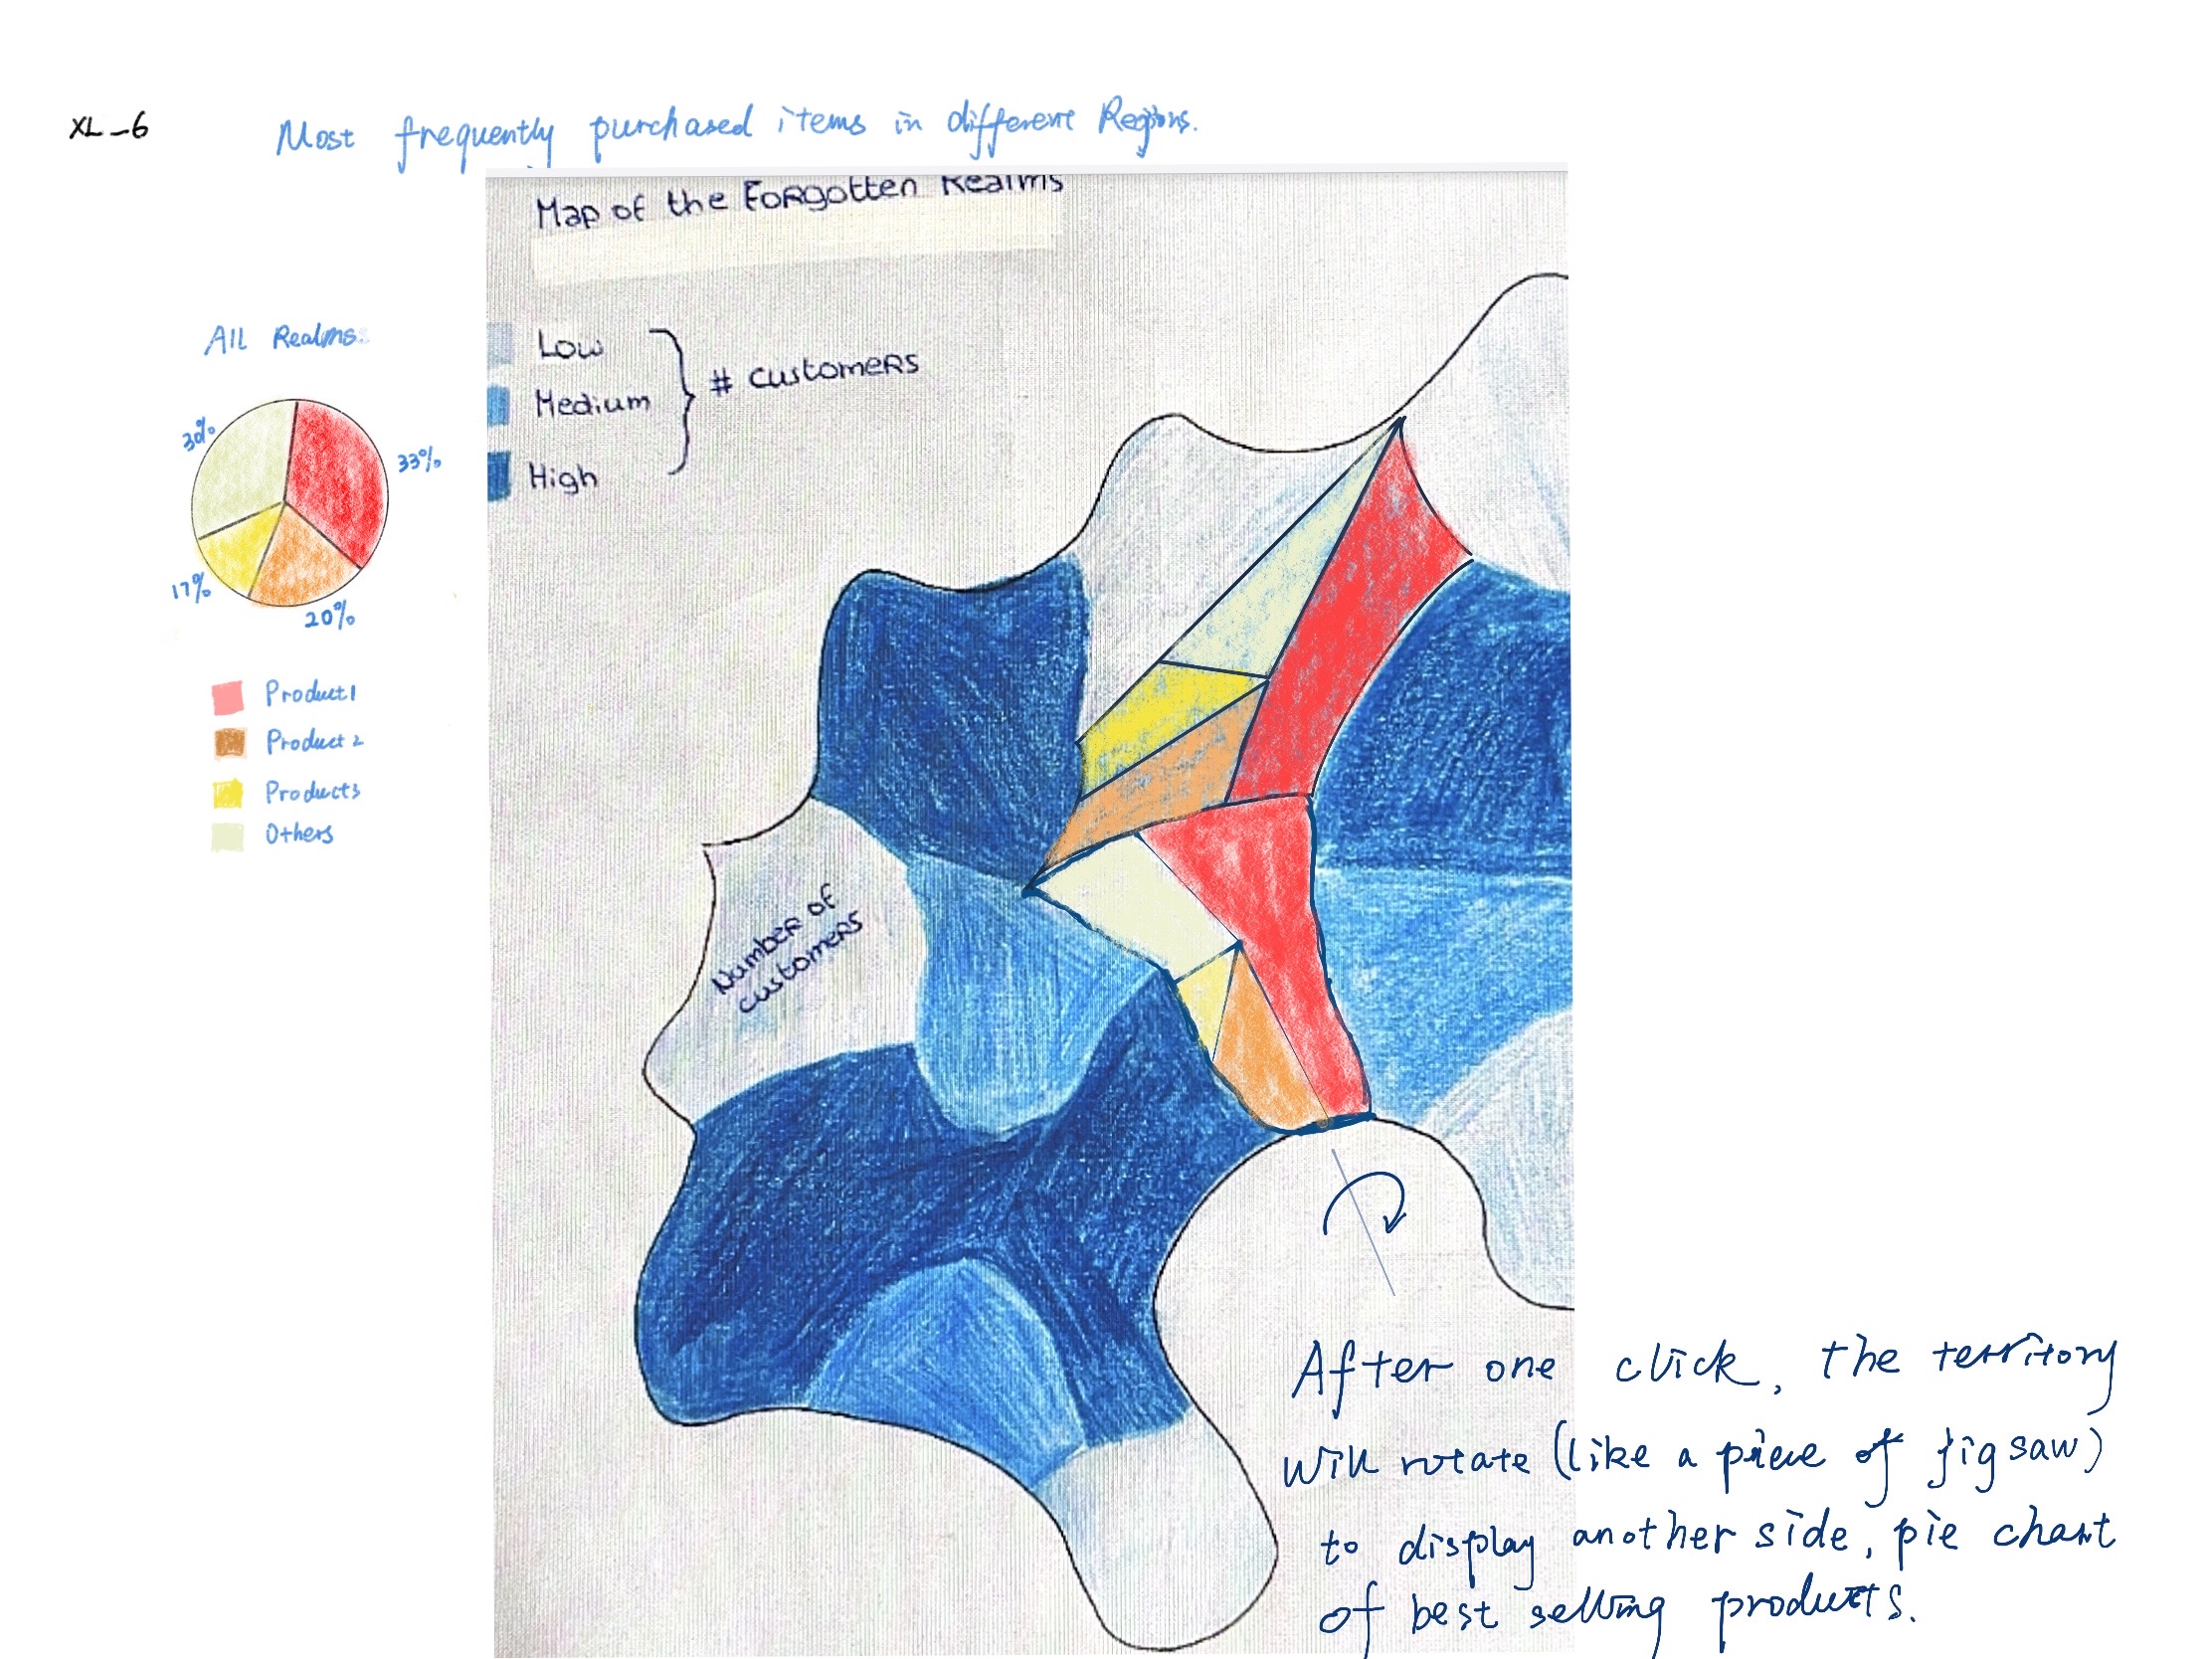 XL_6
Most frequently purchased items in different Regions.
Map of the Forgotten Realms
All Realms
Low
Medium
High
# customers
30%
33%
17%
20%
Product1
Product 2
Product3
Others
Number of
customers
After one click, the territory
will rotate (like a piece of jigsaw)
to display another side, pie chart
of best selling products.